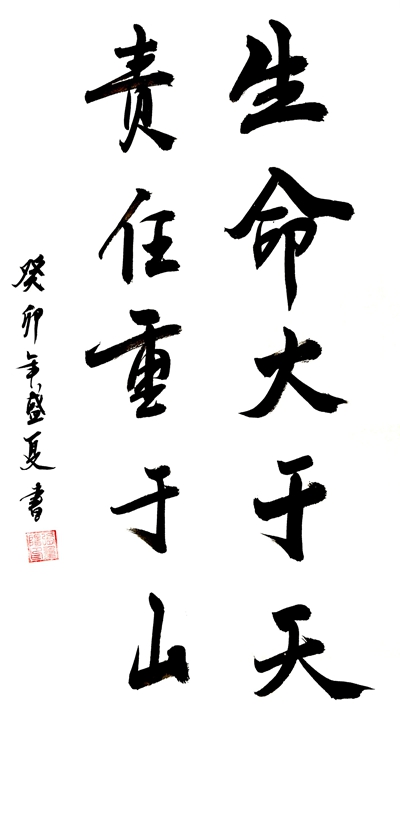 生命大于天
责任重于山
癸卯年盛夏书